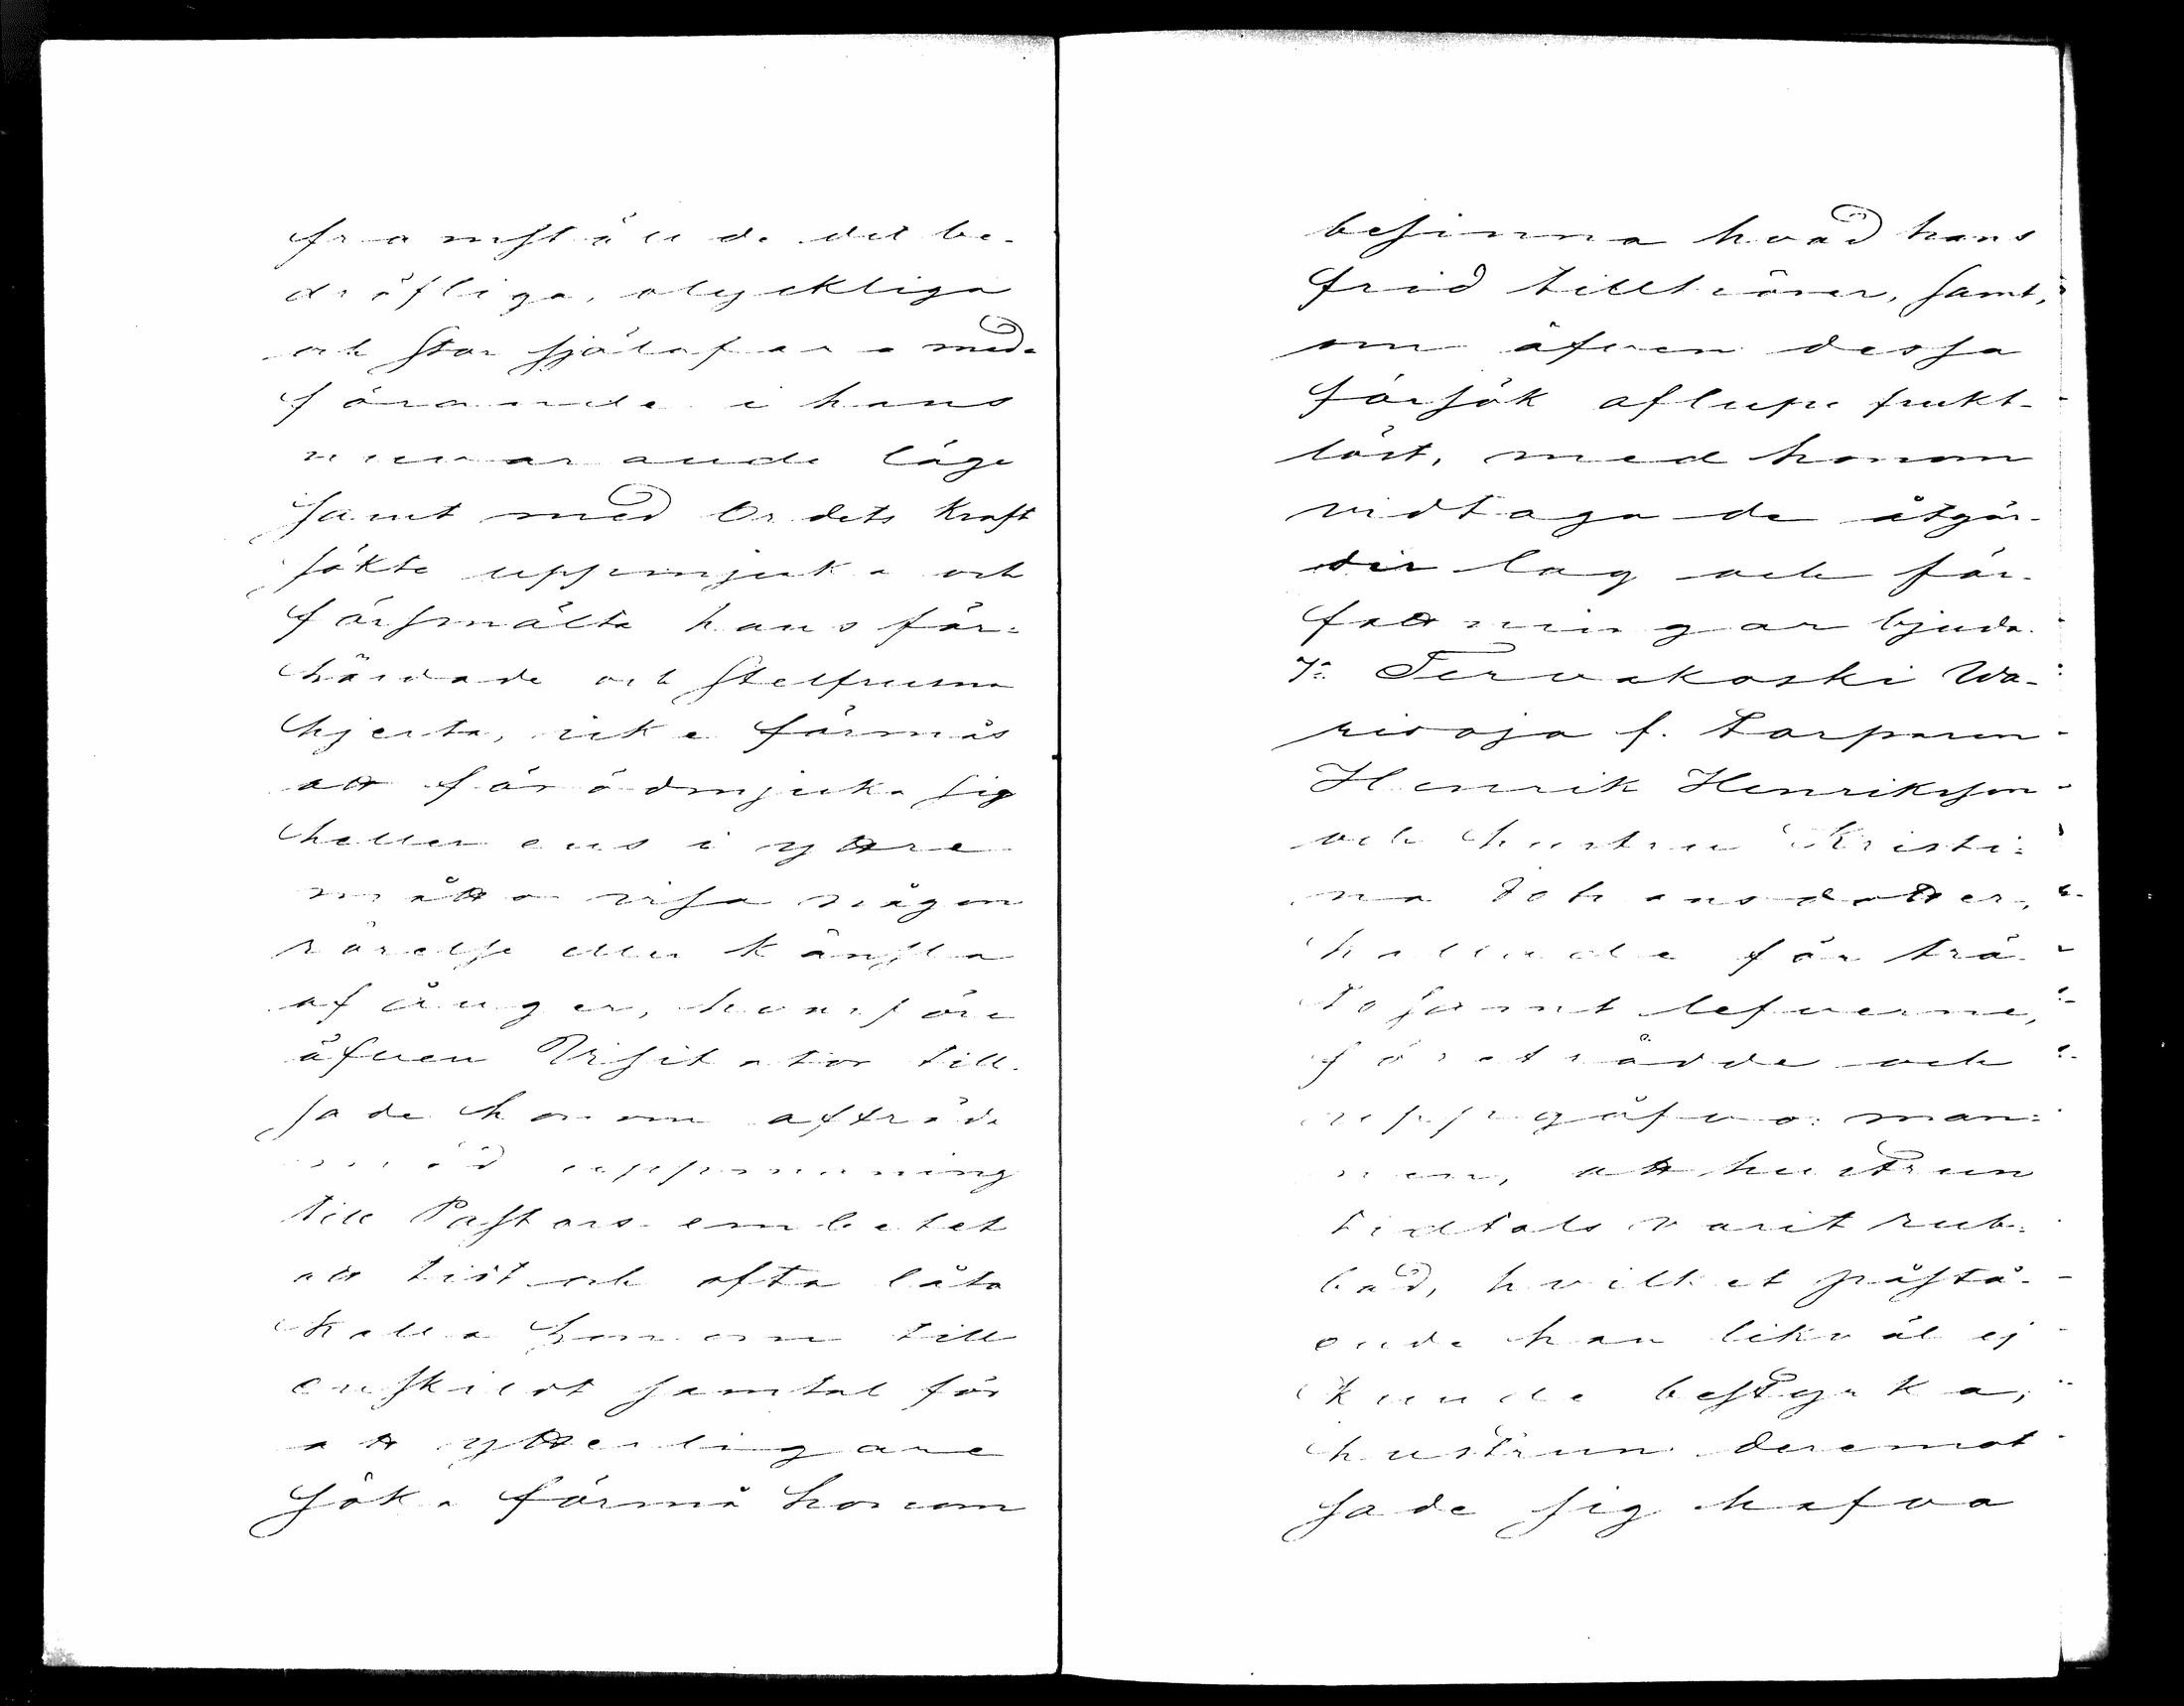 framstälde det be-
dröfliga, olyckliga
och stor själafara med-
förande i hans
nuvarande läge
samt med Ordets kraft
sökte uppmjuka och
försmälta hans för-
härdade och stelfrusna
hjerta, icke förmås
att förödmjuka sig
heller ens i yttre
måtto visa någon
rörelse eller känsla
af ånger, hvarföre
äfven Visitator till-
sade honom afträda
med uppmaning
till Pastors embetet
att tidt och ofta låta
kalla honom till
enskildt samtal för
att ytterligare
söka förmå honom
besinna hvad hans
frid tillhörer, samt,
om äfven dessa
försök aflupe frukt-
löst, med honom
vidtaga de åtgär-
der lag och för-
fattningar bjuda.
7º Tervakoski Wa-
risoja f. Torparen
Henrik Henriksson
och hustru Kristi-
na Johansdotter,
kallade för trä-
tosamt lefverne,
företrädde och
uppgåfvo: man-
nen, att hustrun
tidtals varit rub-
bad, hvilket påstå-
ende han likväl ej
kunde bestyrka,
hustrun deremot
sade sig hafva